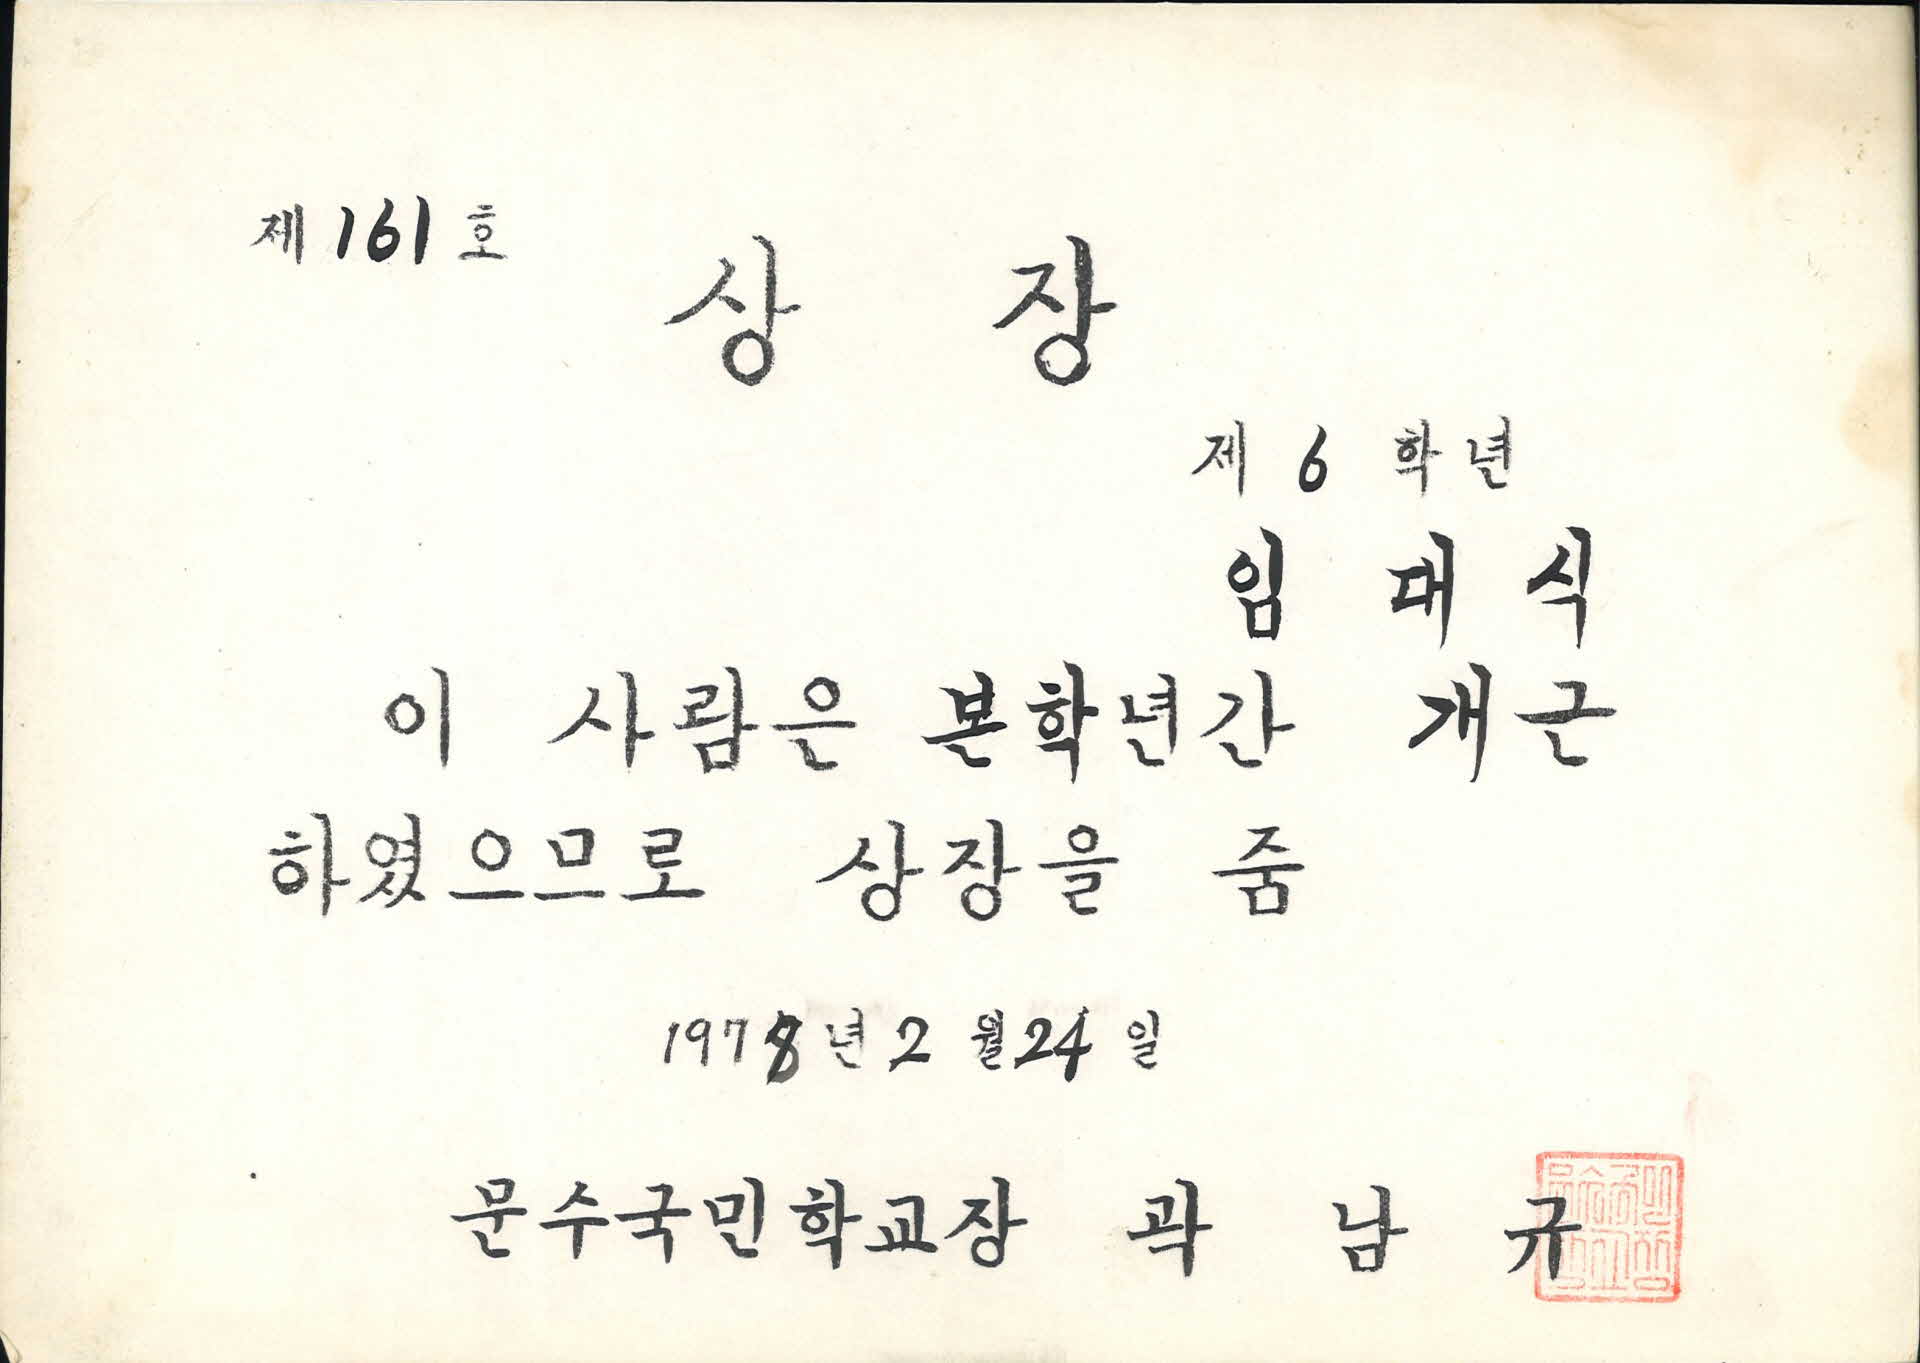 제 161 호
상 장
제 6 학년
임 대 식
이 사람은 본학년간 개근
하였으므로 상장을 줌
1978년 2월 24일
문수국민학교장 곽 남 규